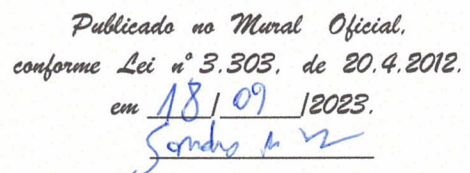 Publicado no Mural Oficial,
conforme Lei nº 3.303, de 20.4.2012.
em 18/09/2023.